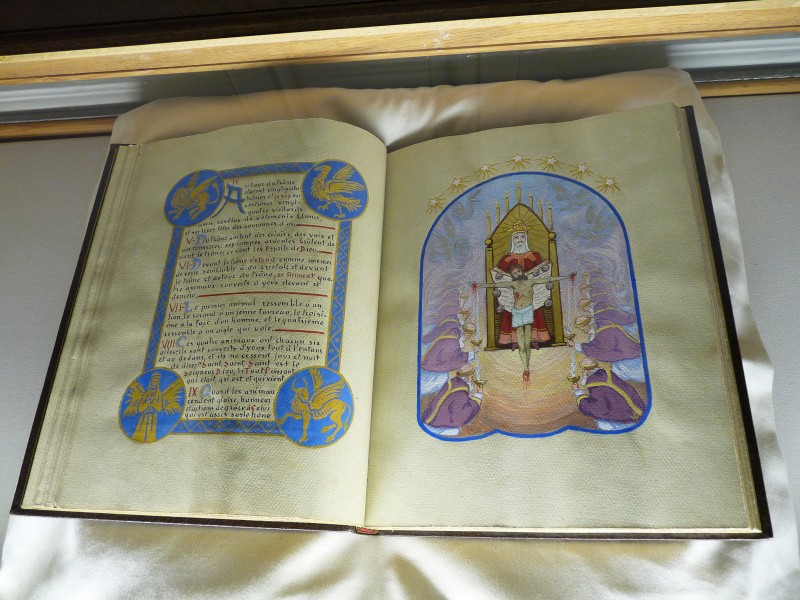 Autour du trône
étaient vingt quatre
trônes et je vis sur
ces trônes vingt-
quatre vieillards
assis, revêtus de vêtements blancs,
et sur leurs têtes des couronnes d'or.
V. Du trône sortent des éclairs, des voix et
des tonnerres; sept lampes ardentes brûlent de-
vant le trône; ce sont les Esprits de Dieu.
VI. Devant le trône s'étend comme une mer
de verre semblable à du cristal; et devant
le trône et autour du trône, se tiennent qua-
tre animaux couverts d'yeux devant et
derrière.
VII Le premier animal ressemble à un
lion, le second à un jeune taureau, le troisi-
ème a la face d'un homme, et le quatrième
ressemble à un aigle qui vole.
VIII Ces quatre animaux ont chacun six
ailes; ils sont couverts d'yeux tout à l'entour
et au dedans, et ils ne cessent jour et nuit
de dire: Saint, Saint, Saint est le
Seigneur Dieu, le Tout Puissant
qui était, qui est et qui vient
IX Quand les animaux
rendent gloire, honneur
et actions de grâce à Celui
qui est assis sur le trône